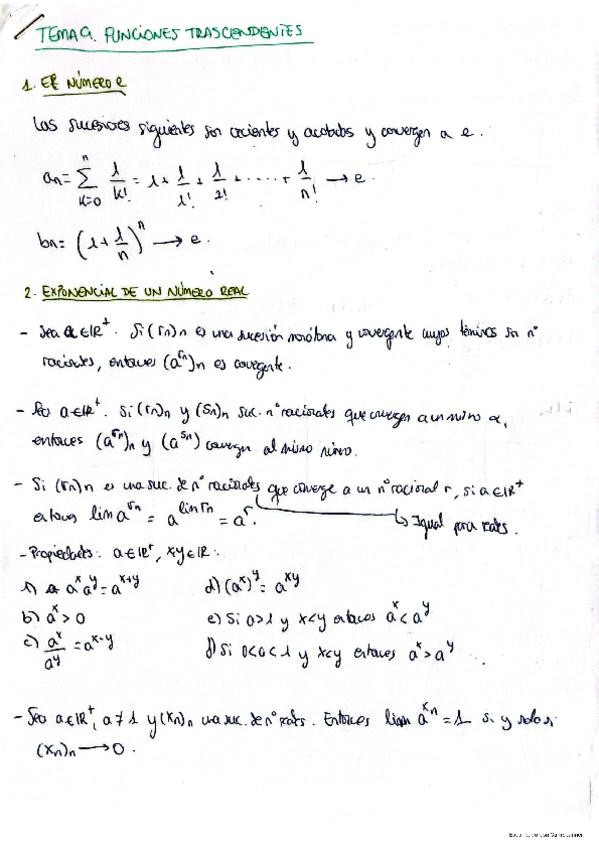 TEMA 9. FUNCIONES TRASCENDENTES
1. El NÚMERO e
Las sucesiones siguientes son crecientes y acotadas y convergen a e.
an = ∑_{k=0}^{n} 1/k! = 1 + 1/1! + 1/2! + ..... + 1/n! → e
bn = (1 + 1/n)^n → e.
2. EXPONENCIAL DE UN NÚMERO REAL
- Sea a ∈ IR⁺. Si (rn)n es una sucesión monótona y convergente cuyos términos son nº
racionales, entonces (a^{rn})n es convergente.
- Sea a ∈ IR⁺. Si (rn)n y (sn)n suc. nº racionales que convergen a un mismo α,
entonces (a^{rn})n y (a^{sn}) convergen al mismo número.
- Si (rn)n es una suc. de nº racionales que converge a un nº racional r, si a ∈ IR⁺
entonces lim a^{rn} = a^{lim rn} = a^r. → Igual para reales.
- Propiedades: a ∈ IR⁺, x,y ∈ IR:
a^x a^y = a^{x+y} d) (a^x)^y = a^{xy}
b) a^x > 0 e) Si a>1 y x<y entonces a^x < a^y
c) a^x/a^y = a^{x-y} f) Si 0<a<1 y x<y entonces a^x > a^y
- Sea a ∈ IR⁺, a ≠ 1 y (xn)n una suc. de nº reales. Entonces lim a^{xn} = 1 si y solo si
(xn)n → 0.